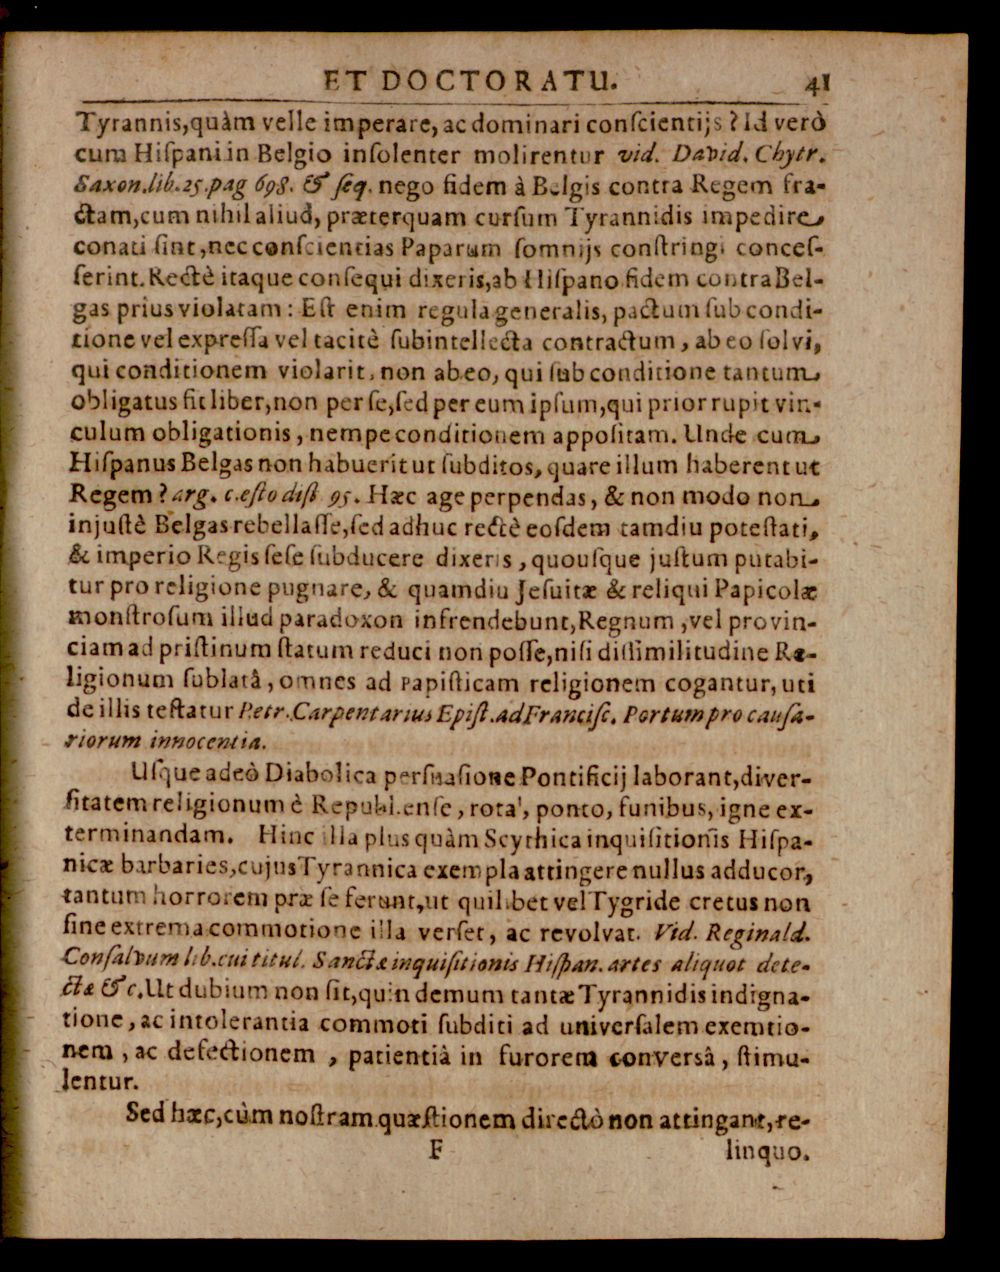 ET DOCTORATU. 41
Tyrannis,quàm velle imperare, ac dominari conſcientijs ? Id verò
cum Hiſpani in Belgio inſolenter molirentur vid. David. Chytr.
Saxon.lib.25.pag 698. & ſeq. nego fidem à Belgis contra Regem fra-
ctam,cum nihil aliud, præterquam curſum Tyrannidis impedire
conati ſint,nec conſcientias Paparum ſomnijs conſtringi conceſ-
ſerint. Rectè itaque conſequi dixeris,ab Hiſpano fidem contra Bel-
gas prius violatam : Eſt enim regula generalis, pactum ſub condi-
tione vel expreſſa vel tacitè ſubintellecta contractum, ab eo ſolvi,
qui conditionem violarit, non ab eo, qui ſub conditione tantum
obligatus fit liber,non per ſe,ſed per eum ipſum,qui prior rupit vin-
culum obligationis, nempe conditionem appoſitam. Unde cum
Hiſpanus Belgas non habuerit ut ſubditos, quare illum haberent ut
Regem ? arg. c.eſto diſt 95. Hæc age perpendas, & non modo non
injuſtè Belgas rebellaſſe,ſed adhuc rectè eoſdem tamdiu poteſtati,
& imperio Regis ſeſe ſubducere dixeris, quouſque juſtum putabi-
tur pro religione pugnare, & quamdiu Jeſuitæ & reliqui Papicolæ
monſtroſum illud paradoxon infrendebunt,Regnum ,vel provin-
ciam ad priſtinum ſtatum reduci non poſſe,niſi diſſimilitudine Re-
ligionum ſublatâ, omnes ad Papiſticam religionem cogantur, uti
de illis teſtatur Petr.Carpentarius Epiſt.ad Franciſc. Portum pro cauſa-
riorum innocentia.
Uſque adeò Diabolica perſuaſione Pontificij laborant,diver-
ſitatem religionum è Republ.enſe, rota', ponto, funibus, igne ex-
terminandam. Hinc illa plus quàm Scythica inquiſitionis Hiſpa-
nicæ barbaries,cujus Tyrannica exempla attingere nullus adducor,
tantum horrorem præ ſe ferunt,ut quilibet vel Tygride cretus non
ſine extrema commotione illa verſet, ac revolvat. Vid. Reginald.
Conſalvum lib.cui titul. Sanctæ inquiſitionis Hiſpan. artes aliquot dete-
ctæ &c.Ut dubium non ſit,quin demum tantæ Tyrannidis indigna-
tione, ac intolerantia commoti ſubditi ad univerſalem exemtio-
nem , ac defectionem , patientiâ in furorem conversâ, ſtimu-
lentur.
Sed hæc,cùm noſtram quæſtionem directò non attingant,re-
F linquo.